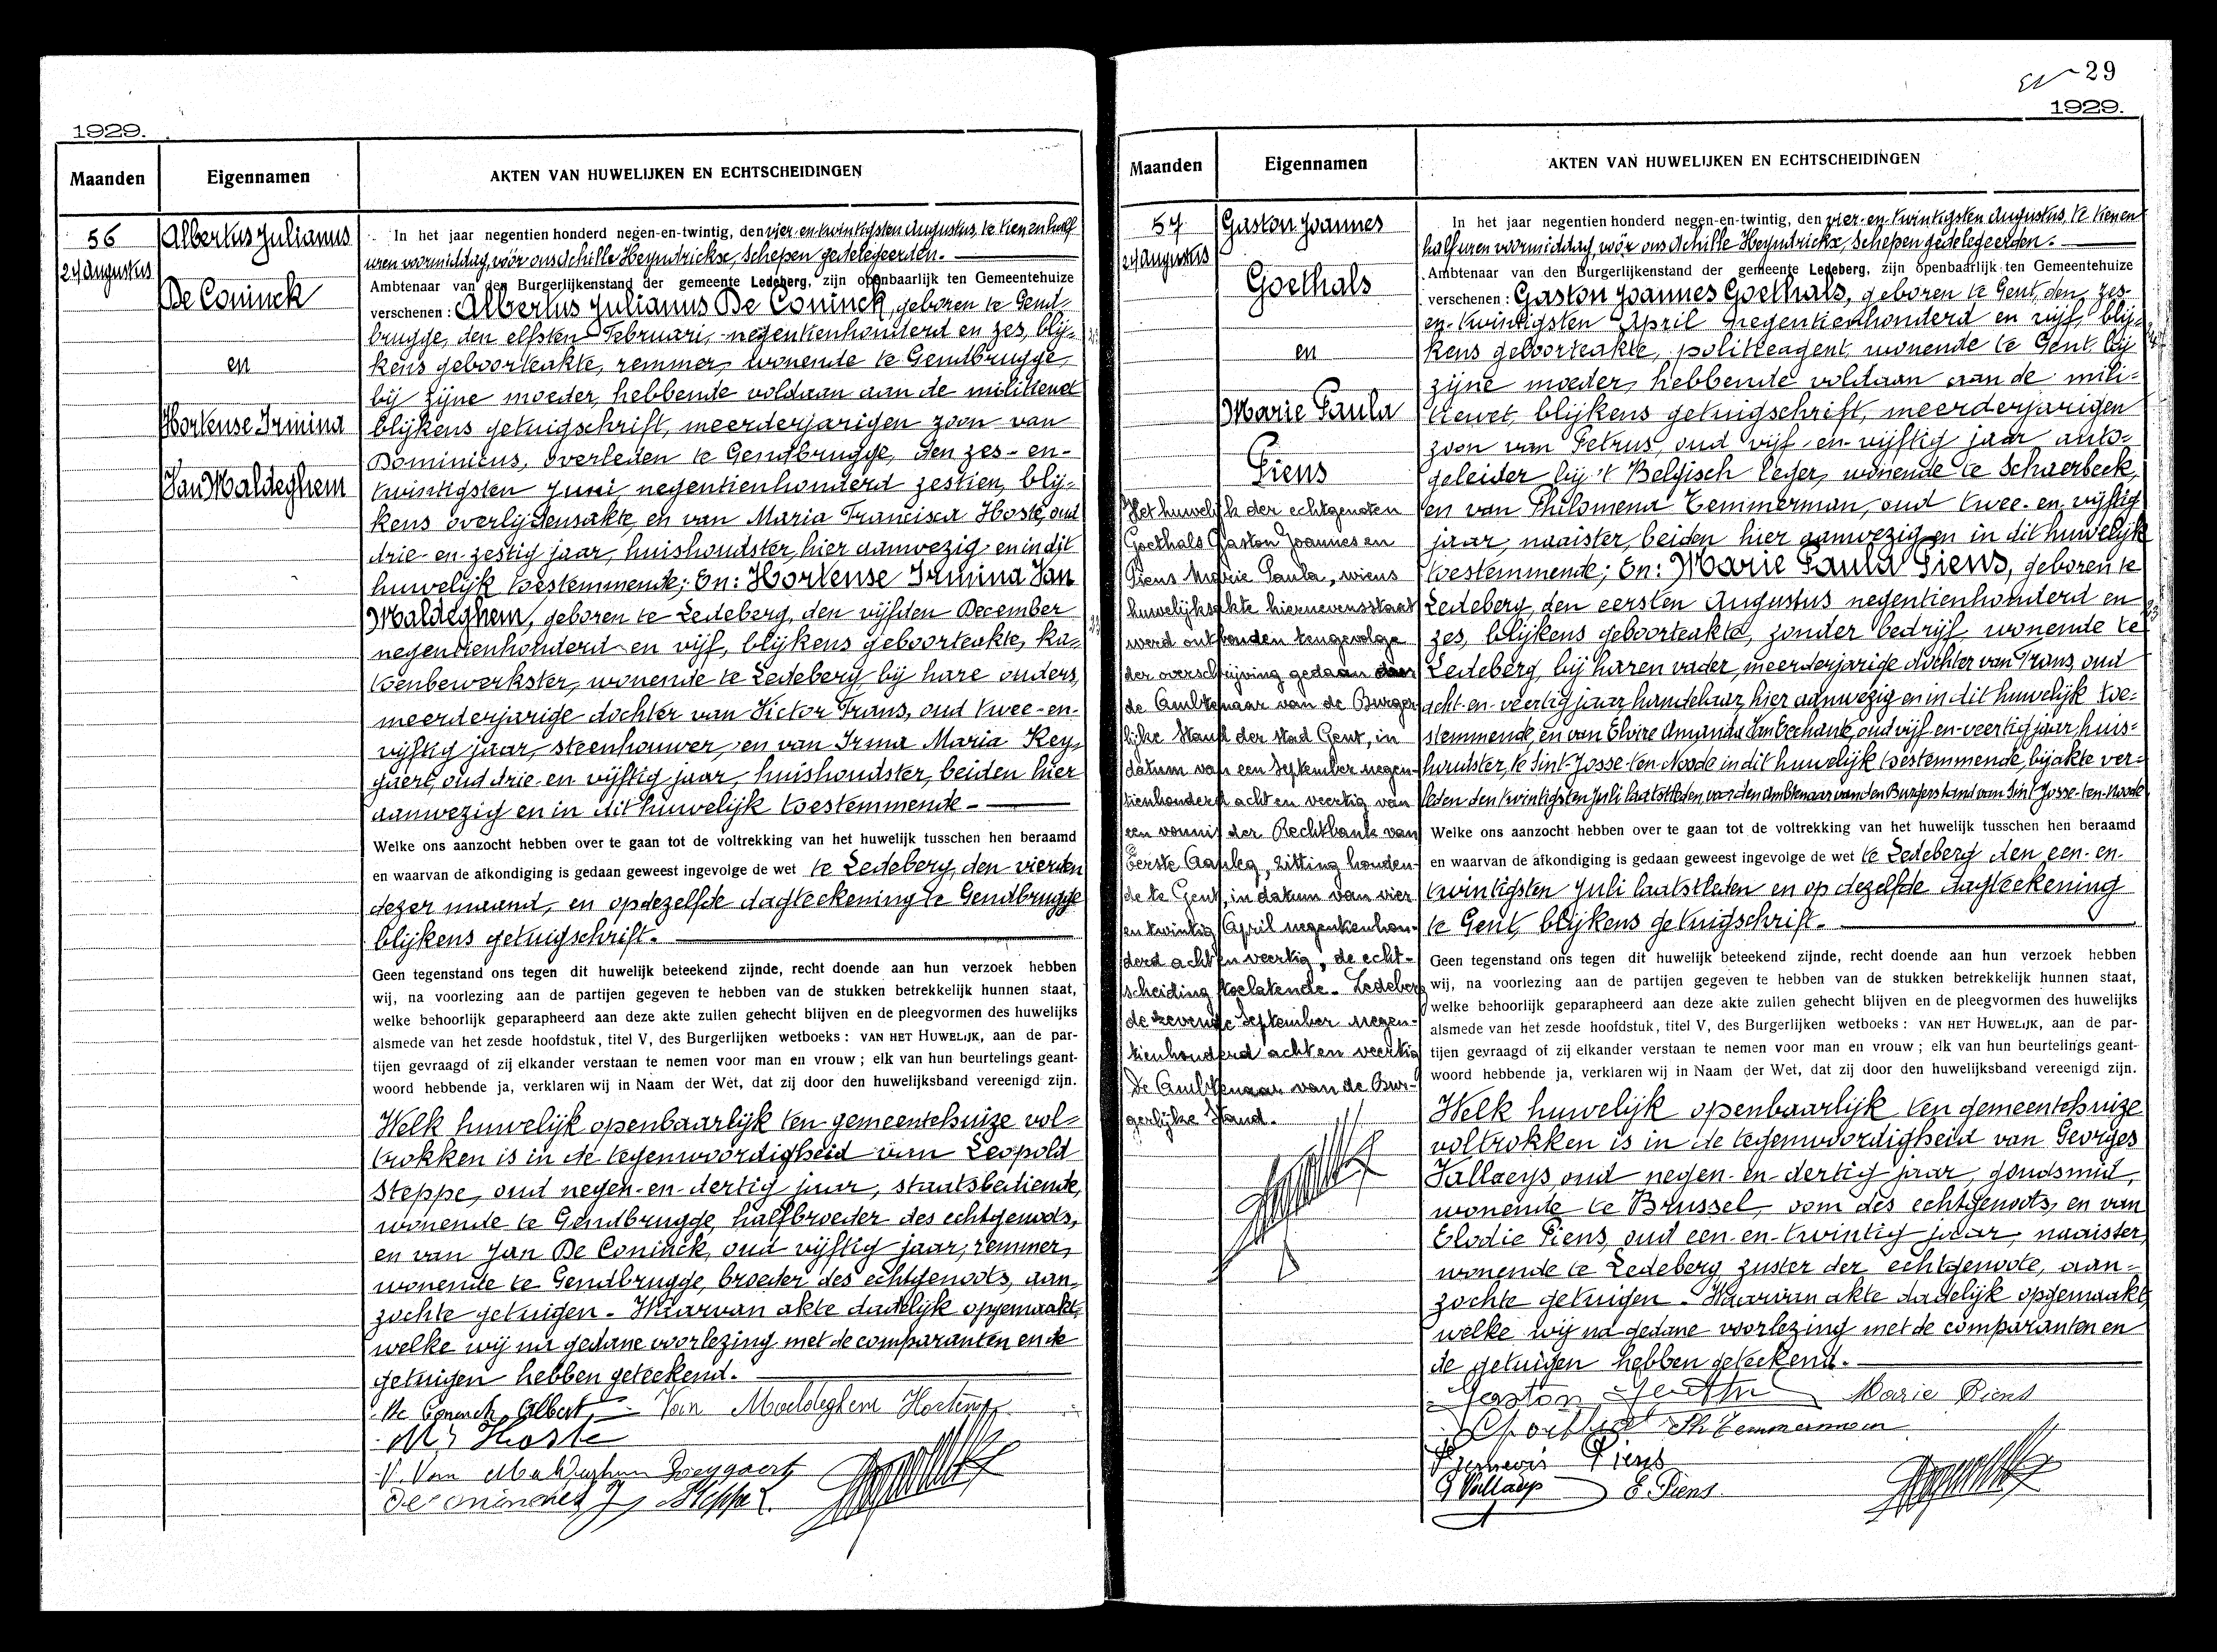 1929.
Maanden Eigennamen AKTEN VAN HUWELIJKEN EN ECHTSCHEIDINGEN
56
24 Augustus
Albertus Julianus
De Coninck
en
Hortense Irmina
Van Maldeghem
In het jaar negentien honderd negen-en-twintig, den vier-en-twintigsten Augustus, te tien en half
uren voormiddag, vóór ons Achille Heyndrickx, schepen gedelegeerden.
Ambtenaar van den Burgerlijkenstand der gemeente Ledeberg, zijn openbaarlijk ten Gemeentehuize
verschenen: Albertus Julianus De Coninck, geboren te Gend-
brugge, den elfsten Februari, negentienhonderd en zes, blij-
kens geboorteakte, remmer, wonende te Gendbrugge,
bij zijne moeder, hebbende voldaan aan de militiewet
blijkens getuigschrift, meerderjarigen zoon van
Dominicus, overleden te Gendbrugge, den zes-en-
twintigsten Juni, negentienhonderd zestien, blij-
kens overlijdensakte, en van Maria Francisca Hoste, oud
drie-en-zestig jaar, huishoudster, hier aanwezig en in dit
huwelijk toestemmende; En: Hortense Irmina Van
Maldeghem, geboren te Ledeberg, den vijfden December
negentienhonderd en vijf, blijkens geboorteakte, ka-
toenbewerkster, wonende te Ledeberg bij hare ouders,
meerderjarige dochter van Victor Frans, oud twee-en-
vijftig jaar, steenhouwer, en van Irma Maria Key-
gaert, oud drie-en vijftig jaar, huishoudster, beiden hier
aanwezig en in dit huwelijk toestemmende.
Welke ons aanzocht hebben over te gaan tot de voltrekking van het huwelijk tusschen hen beraamd
en waarvan de afkondiging is gedaan geweest ingevolge de wet te Ledeberg, den vierden
dezer maand, en op dezelfde dagteekening te Gendbrugge
blijkens getuigschrift.
Geen tegenstand ons tegen dit huwelijk beteekend zijnde, recht doende aan hun verzoek hebben
wij, na voorlezing aan de partijen gegeven te hebben van de stukken betrekkelijk hunnen staat,
welke behoorlijk geparapheerd aan deze akte zullen gehecht blijven en de pleegvormen des huwelijks
alsmede van het zesde hoofdstuk, titel V, des Burgerlijken wetboeks: VAN HET HUWELIJK, aan de par-
tijen gevraagd of zij elkander verstaan te nemen voor man en vrouw; elk van hun beurtelings geant-
woord hebbende ja, verklaren wij in Naam der Wet, dat zij door den huwelijksband vereenigd zijn.
Welk huwelijk openbaarlijk ten gemeentehuize vol-
trokken is in de tegenwoordigheid van Leopold
Steppe, oud negen-en-dertig jaar, staatsbediende,
wonende te Gendbrugge, halfbroeder des echtgenoots,
en van Jan De Coninck, oud vijftig jaar, remmer,
wonende te Gendbrugge, broeder des echtgenoots, aan-
zochte getuigen. Waarvan akte dadelijk opgemaakt,
welke wij na gedane voorlezing met de comparanten en de
getuigen hebben geteekend.
De Coninck Albert Van Maldeghem Hortense
Hoste
V. Van Maldeghem
Steppe L.
29
1929.
Maanden Eigennamen AKTEN VAN HUWELIJKEN EN ECHTSCHEIDINGEN
57
24 Augustus
Gaston Joannes
Goethals
en
Marie Paula
Piens
Het huwelijk der echtgenoten
Goethals Gaston Joannes en
Piens Marie Paula, wiens
huwelijksakte hiernevensstaat
werd ontbonden tengevolge
der overschrijving gedaan door
de Ambtenaar van de Burger-
lijke Stand der stad Gent, in
datum van een September negen-
tienhonderd acht en veertig van
een vonnis der Rechtbank van
Eerste Aanleg, zitting houden-
de te Gent, in datum van vier
en twintig April negentienhon-
derd acht en veertig, de echt-
scheiding toelatende. Ledeberg
de zevende September negen-
tienhonderd acht en veertig
De Ambtenaar van de Bur-
gerlijke Stand.
In het jaar negentien honderd negen-en-twintig, den vier-en-twintigsten Augustus, te tien en
half uren voormiddag, vóór ons Achille Heyndrickx, schepen gedelegeerden.
Ambtenaar van den Burgerlijkenstand der gemeente Ledeberg, zijn openbaarlijk ten Gemeentehuize
verschenen: Gaston Joannes Goethals, geboren te Gent, den zes-
en-twintigsten April negentienhonderd en vijf, blij-
kens geboorteakte, politieagent, wonende te Gent bij
zijne moeder, hebbende voldaan aan de mili-
tiewet, blijkens getuigschrift, meerderjarigen
zoon van Petrus, oud vijf-en-vijftig jaar auto-
geleider bij 't Belgisch leger, wonende te Schaerbeek,
en van Philomena Temmerman, oud twee-en-vijftig
jaar, naaister, beiden hier aanwezig en in dit huwelijk
toestemmende; En: Marie Paula Piens, geboren te
Ledeberg, den eersten Augustus negentienhonderd en
zes, blijkens geboorteakte, zonder bedrijf, wonende te
Ledeberg, bij haren vader, meerderjarige dochter van Frans, oud
acht-en-veertig jaar, handelaar, hier aanwezig en in dit huwelijk toe-
stemmende, en van Elvire Amanda Van Eechaute, oud vijf-en-veertig jaar, huis-
houdster, te Sint Josse-ten-Noode in dit huwelijk toestemmende, bij akte ver-
leden den twintigsten Juli laatstleden voor den Ambtenaar van den Burgerstand van Sint Josse-ten-Noode
Welke ons aanzocht hebben over te gaan tot de voltrekking van het huwelijk tusschen hen beraamd
en waarvan de afkondiging is gedaan geweest ingevolge de wet te Ledeberg den een-en-
twintigsten Juli laatstleden en op dezelfde dagteekening
te Gent, blijkens getuigschrift.
Geen tegenstand ons tegen dit huwelijk beteekend zijnde, recht doende aan hun verzoek hebben
wij, na voorlezing aan de partijen gegeven te hebben van de stukken betrekkelijk hunnen staat,
welke behoorlijk geparapheerd aan deze akte zullen gehecht blijven en de pleegvormen des huwelijks
alsmede van het zesde hoofdstuk, titel V, des Burgerlijken wetboeks: VAN HET HUWELIJK, aan de par-
tijen gevraagd of zij elkander verstaan te nemen voor man en vrouw; elk van hun beurtelings geant-
woord hebbende ja, verklaren wij in Naam der Wet, dat zij door den huwelijksband vereenigd zijn.
Welk huwelijk openbaarlijk ten gemeentehuize
voltrokken is in de tegenwoordigheid van Georges
Vallaeys oud negen-en-dertig jaar, goudsmid,
wonende te Brussel, oom des echtgenoots, en van
Elodie Piens, oud een-en-twintig jaar, naaister,
wonende te Ledeberg, zuster der echtgenoote, aan-
zochte getuigen. Waarvan akte dadelijk opgemaakt
welke wij na gedane voorlezing met de comparanten en
de getuigen hebben geteekend.
Gaston Marie Piens
Th Temmerman
Piens
G Vallaeys E. Piens